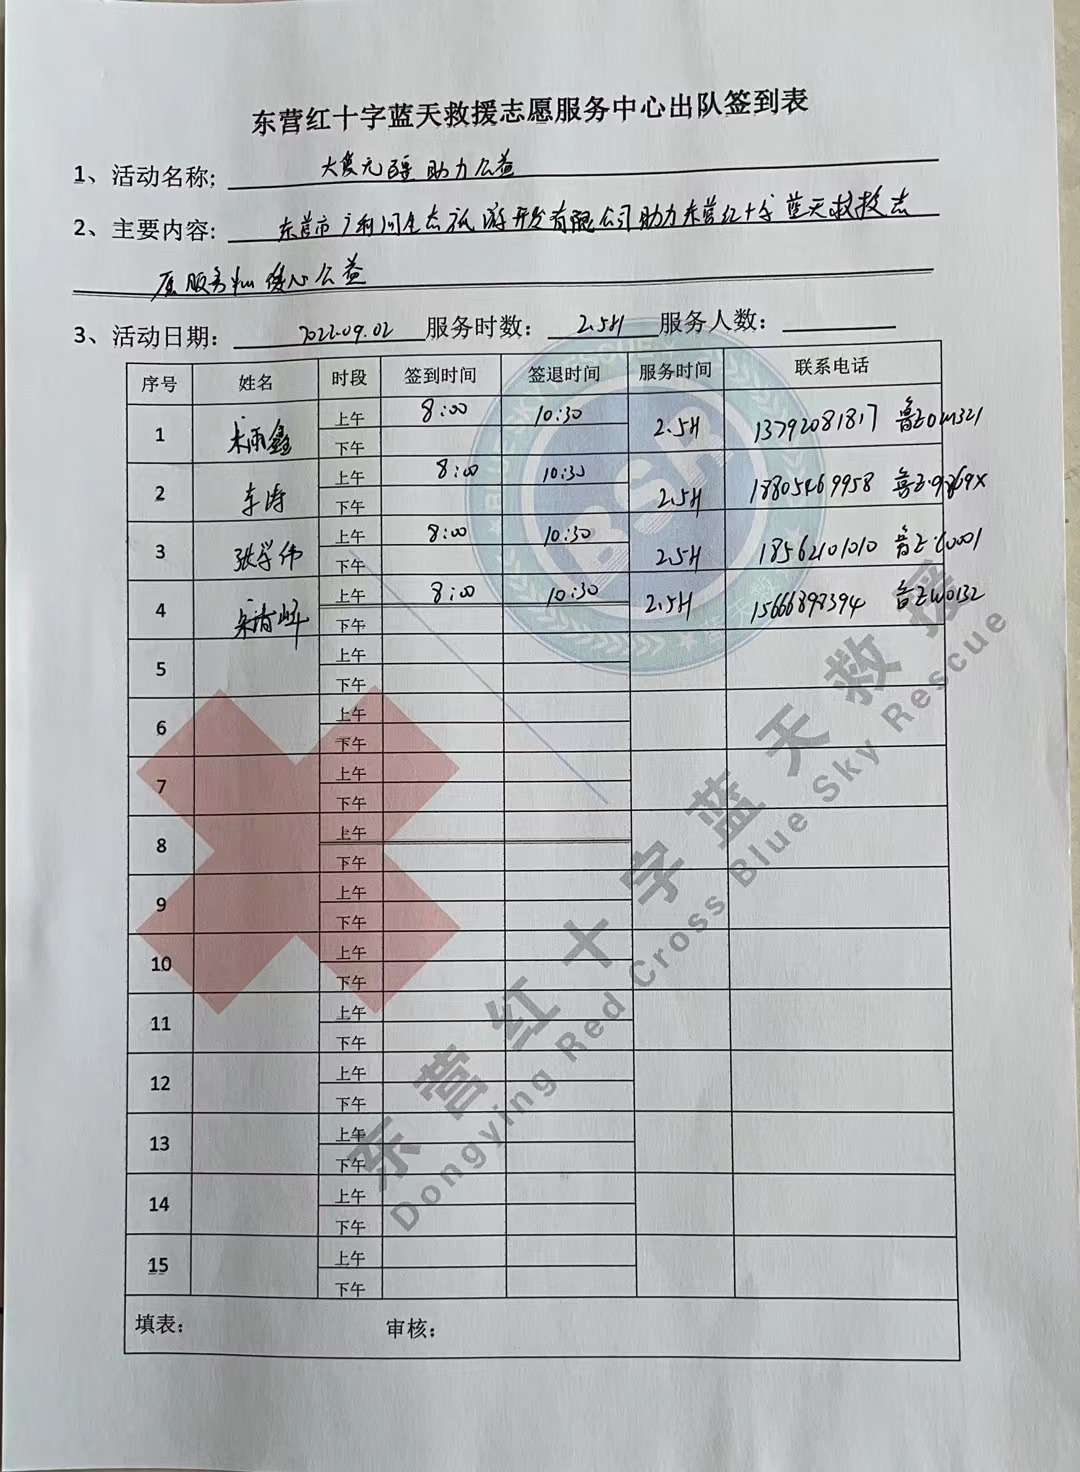 东营红十字蓝天救援志愿服务中心出队签到表
1、活动名称: 助力公益
2、主要内容: 东营市广利河生态旅游开发有限公司助力东营红十字蓝天救援志
愿服务中心暖心公益
3、活动日期: 2022.09.02 服务时数: 2.5H 服务人数:
序号 姓名 时段 签到时间 签退时间 服务时间 联系电话
1 上午 8:00 10:30 2.5H 13792081817
下午
2 车涛 上午 8:00 10:30 2.5H 18805469958
下午
3 张学伟 上午 8:00 10:30 2.5H 18562101010
下午
4 上午 8:00 10:30 2.5H 15666898394 鲁EW0132
下午
5 上午
下午
6 上午
下午
7 上午
下午
8 上午
下午
9 上午
下午
10 上午
下午
11 上午
下午
12 上午
下午
13 上午
下午
14 上午
下午
15 上午
下午
填表: 审核:
东营红十字蓝天救援
Dongying Red Cross Blue Sky Rescue
BSR